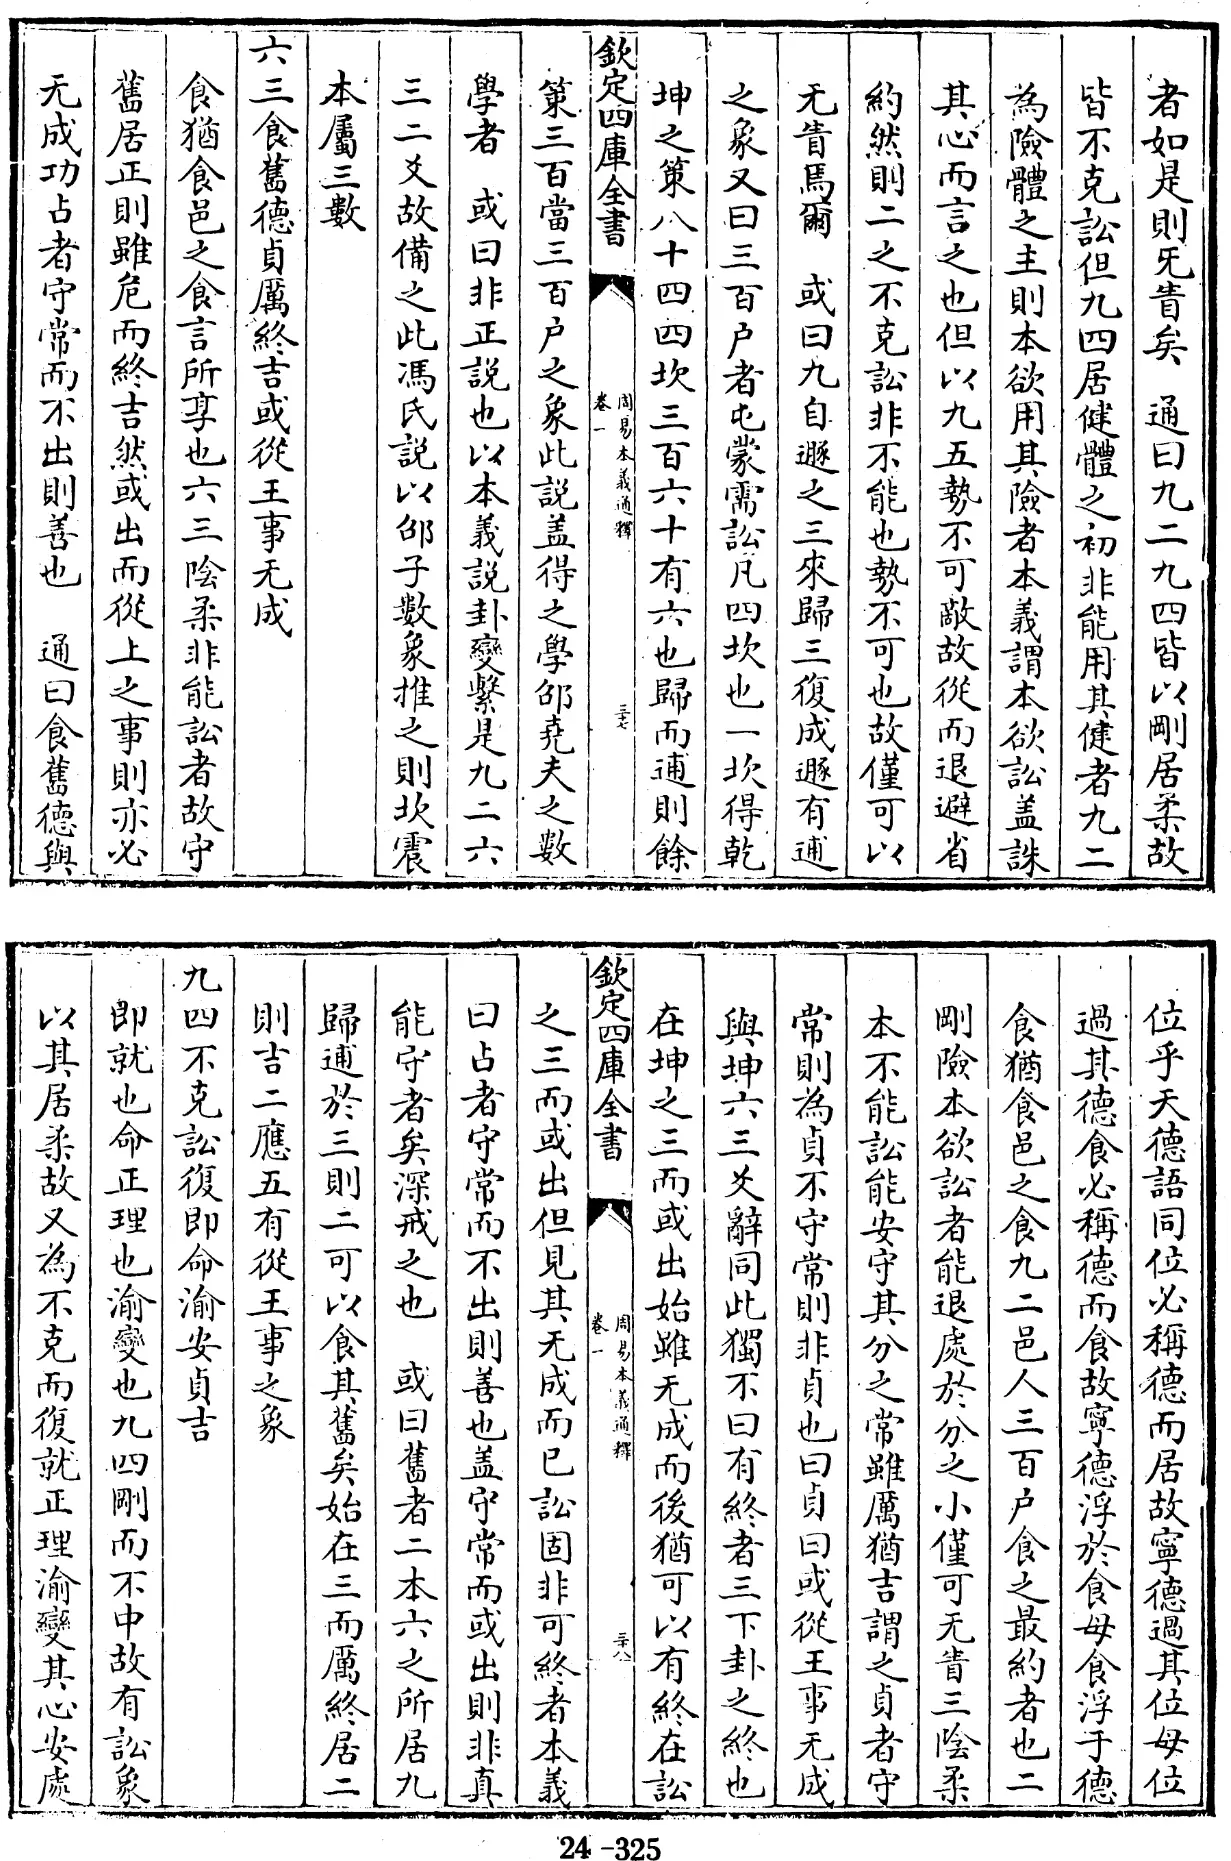 者如是則无眚矣　通曰九二九四皆以剛居柔故
皆不克訟但九四居健體之初非能用其健者九二
為險體之主則本欲用其險者本義謂本欲訟盖誅
其心而言之也但以九五勢不可敵故從而退避省
約然則二之不克訟非不能也勢不可也故僅可以
无眚焉爾　或曰九自遯之三來歸三復成遯有逋
之象又曰三百户者屯蒙需訟凡四坎也一坎得乾
坤之策八十四四坎三百六十有六也歸而逋則餘
欽定四庫全書
周易本義通釋
卷一
三七
策三百當三百户之象此説盖得之學邵堯夫之數
學者　或曰非正説也以本義説卦變繫是九二六
三二爻故備之此馮氏説以邵子數象推之則坎震
本屬三數
六三食舊德貞厲終吉或從王事无成
食猶食邑之食言所享也六三陰柔非能訟者故守
舊居正則雖危而終吉然或出而從上之事則亦必
无成功占者守常而不出則善也　通曰食舊德與
位乎天德語同位必稱德而居故寧德過其位毋位
過其德食必稱德而食故寧德浮於食毋食浮于德
食猶食邑之食九二邑人三百户食之最約者也二
剛險本欲訟者能退處於分之小僅可无眚三陰柔
本不能訟能安守其分之常雖厲猶吉謂之貞者守
常則為貞不守常則非貞也曰貞曰或從王事无成
與坤六三爻辭同此獨不曰有終者三下卦之終也
在坤之三而或出始雖无成而後猶可以有終在訟
欽定四庫全書
周易本義通釋
卷一
三八
之三而或出但見其无成而已訟固非可終者本義
曰占者守常而不出則善也盖守常而或出則非真
能守者矣深戒之也　或曰舊者二本六之所居九
歸逋於三則二可以食其舊矣始在三而厲終居二
則吉二應五有從王事之象
九四不克訟復即命渝安貞吉
即就也命正理也渝變也九四剛而不中故有訟象
以其居柔故又為不克而復就正理渝變其心安處
24-325